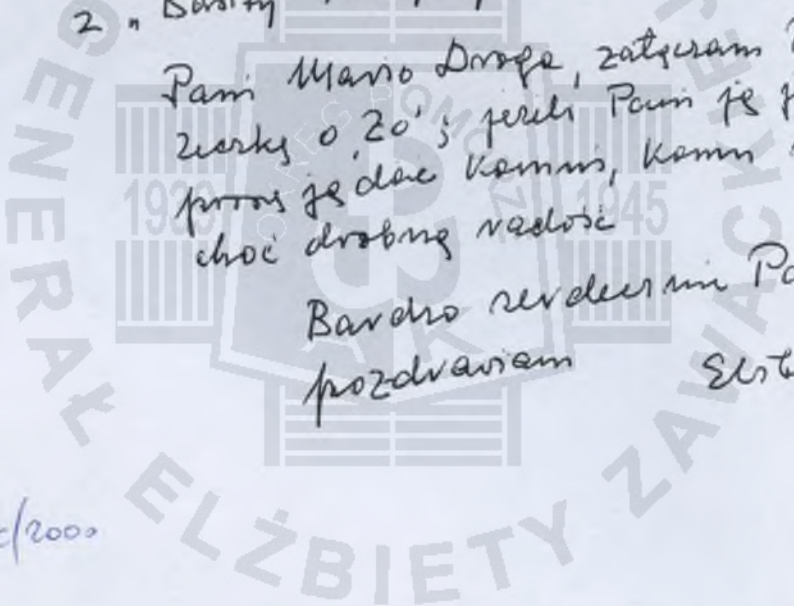 2 "
Pani Mario Droga, załączam
o "Zo"; jeżeli Pani ją
proszę ją dać komuś, komu
choć drobną radość
Bardzo serdecznie
pozdrawiam
/2000
GENERAŁ ELŻBIETY ZAWACKIEJ
1939 1945